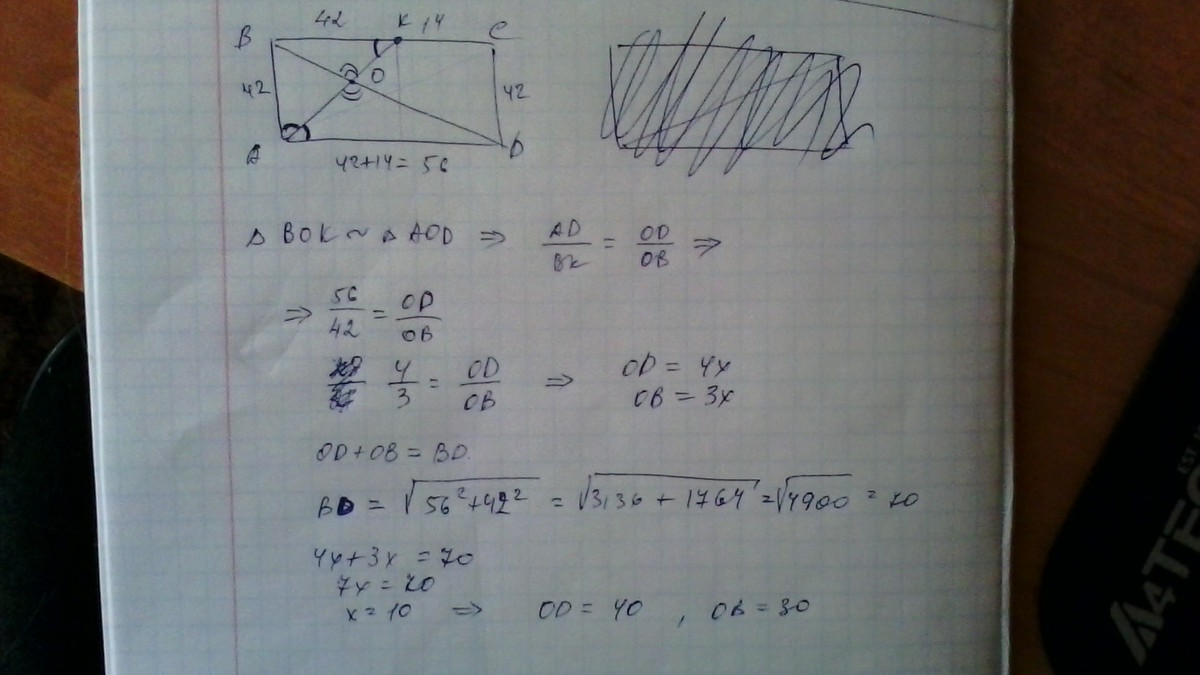 42 K 14
B C
O
42 42
A D
42+14= 56
Δ BOK ~ Δ AOD ⇒ AD/BK = OD/OB ⇒
⇒ 56/42 = OD/OB
4/3 = OD/OB ⇒ OD = 4x
OB = 3x
OD+OB = BD.
BD = √(56²+42²) = √(3136 + 1764) = √4900 = 70
4x+3x = 70
7x = 70
x = 10 ⇒ OD = 40 , OB = 30
A4TEC